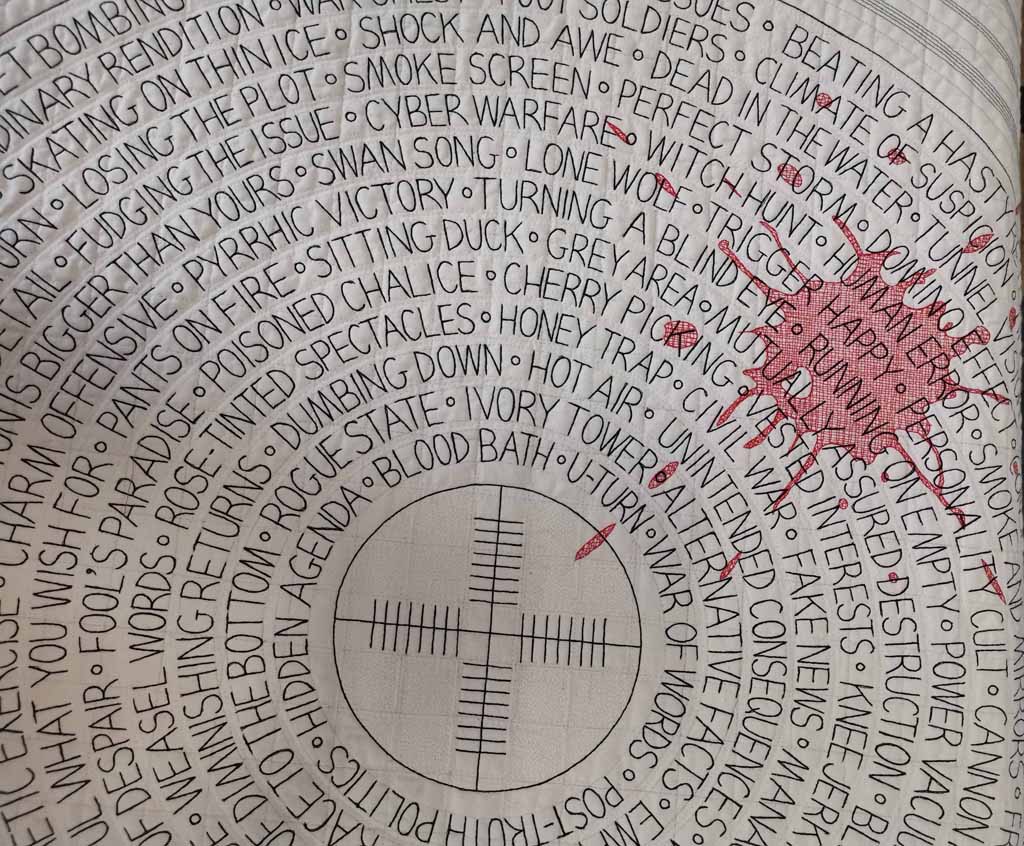 BOMBING • BEATING A HASTY
RENDITION • WAR • SOLDIERS • CLIMATE OF SUSPICION
SKATING ON THIN ICE • SHOCK AND AWE • DEAD IN THE WATER • TUNNEL
• LOSING THE PLOT • SMOKE SCREEN • PERFECT STORM • DOMINO
• FUDGING THE ISSUE • CYBER WARFARE • WITCH-HUNT • HUMAN ERROR • SMOKE AND MIRRORS
IS BIGGER THAN YOURS • SWAN SONG • LONE WOLF • TRIGGER HAPPY • PERSONALITY CULT • CANNON
• CHARM OFFENSIVE • PYRRHIC VICTORY • TURNING A BLIND EYE • RUNNING ON EMPTY • POWER
WHAT YOU WISH FOR • PANTS ON FIRE • SITTING DUCK • GREY AREA • MUTUALLY ASSURED DESTRUCTION •
OF DESPAIR • FOOL'S PARADISE • POISONED CHALICE • CHERRY PICKING • VESTED INTERESTS • KNEE JERK
WEASEL WORDS • ROSE-TINTED SPECTACLES • HONEY TRAP • CIVIL WAR • FAKE NEWS •
OF DIMINISHING RETURNS • DUMBING DOWN • HOT AIR • UNINTENDED CONSEQUENCES •
RACE TO THE BOTTOM • ROGUE STATE • IVORY TOWER • ALTERNATIVE FACTS •
POST-TRUTH POLITICS • HIDDEN AGENDA • BLOOD BATH • U-TURN • WAR OF WORDS •